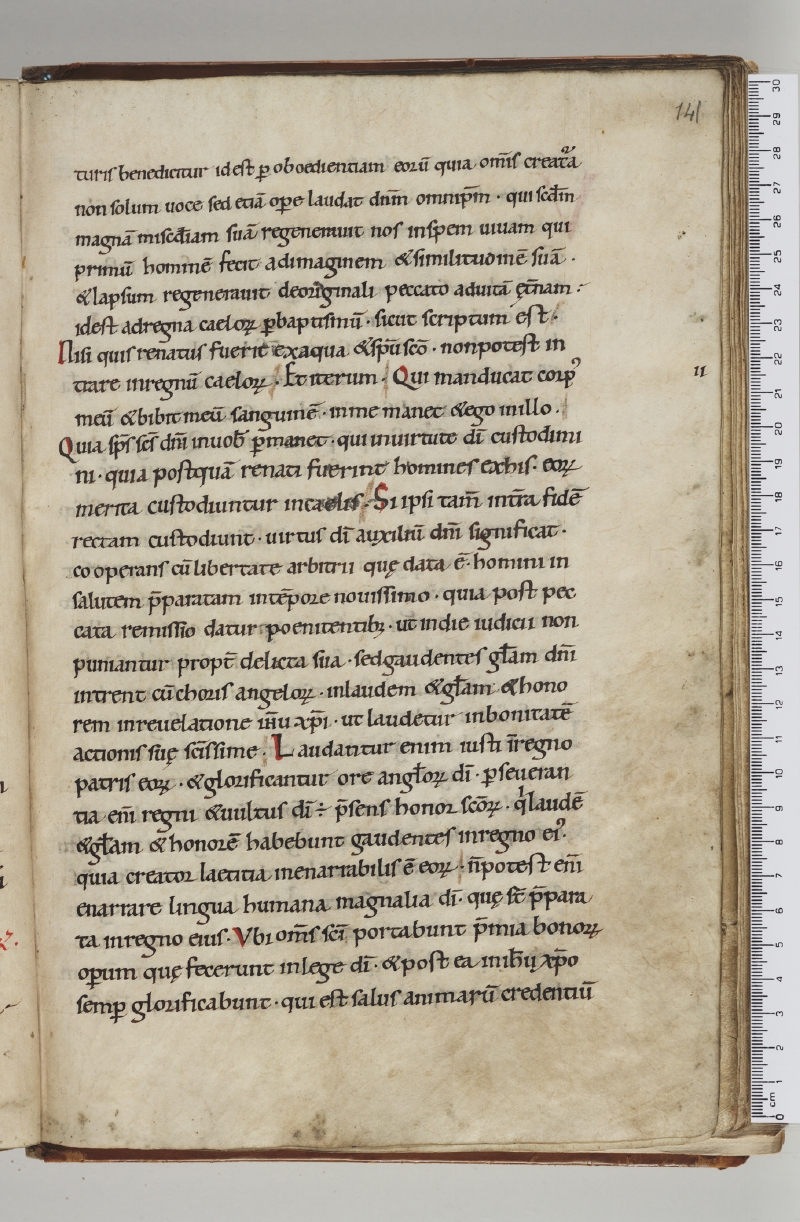 141
turis benedicitur id est ꝑ oboedientiam eorū quia om̄s creatᷓa
non solum uoce sed etiā oꝑe laudat dn̄m omnip̄m · qui scd̄m
magnā misc̄diam suā regenerauit nos inspem uiuam qui
primū hominē fecit adimaginem &similitudinē suā ·
&lapsum regenerauit deoriginali peccato aduitā ęt̄nam :·
idest adregna caeloꝝ ꝑbaptismū · sicut scriptum est ·
Nisi quis renatus fuerit exaqua &sp̄u sc̄o · nonpotest in
trare inregnū caeloꝝ · Et iterum · Qui manducat corpꝰ
meū &bibit meū sanguinē · inme manet &ego inillo ·
Quia sp̄s sc̄s dn̄i inuob̄ ꝑmanet · qui inuirtute dī custodimi
ni · quia postquā renati fuerint homines exhis · eoꝝ
merita custodiuntur incaelis · Si ipsi tam̄ int̄ra fidē
rectam custodiunt · uirtus dī auxiliū dn̄i significat ·
cooperans cū libertate arbitrii quę data ē · homini in
salutem p̄paratam intēpore nouissimo · quia post pec
cata remissio datur poenitentibꝫ · ut indie iudicii non
puniantur propt̄ delicta sua · sedgaudentes gl̄am dn̄i
intrent cū choris angeloꝝ · inlaudem &gl̄am &hono
rem inreuelatione ih̄u xp̄i · ut laudetur inbonitatē
actionis suę sc̄issime · Laudantur enim iusti īregno
patris eoꝝ · &glorificantur ore angl̄oꝝ dī · ꝑseueran
tia em̄ regni &uultus dī ÷ p̄sens honor sc̄oꝝ · qⁱ laudē
&gl̄am &honorē habebunt gaudentes inregno eiꝰ ·
quia creator laetitia inenarrabilis ē eoꝝ · n̄potest em̄
enarrare lingua humana magnalia dī · quę st̄ p̄para
ta inregno eius · Vbi om̄s sc̄i portabunt p̄mia bonoꝝ
oꝑum quę fecerunt inlege dī · &post ea inih̄u xp̄o
semꝑ glorificabunt · qui est salus animarū credentiū
11